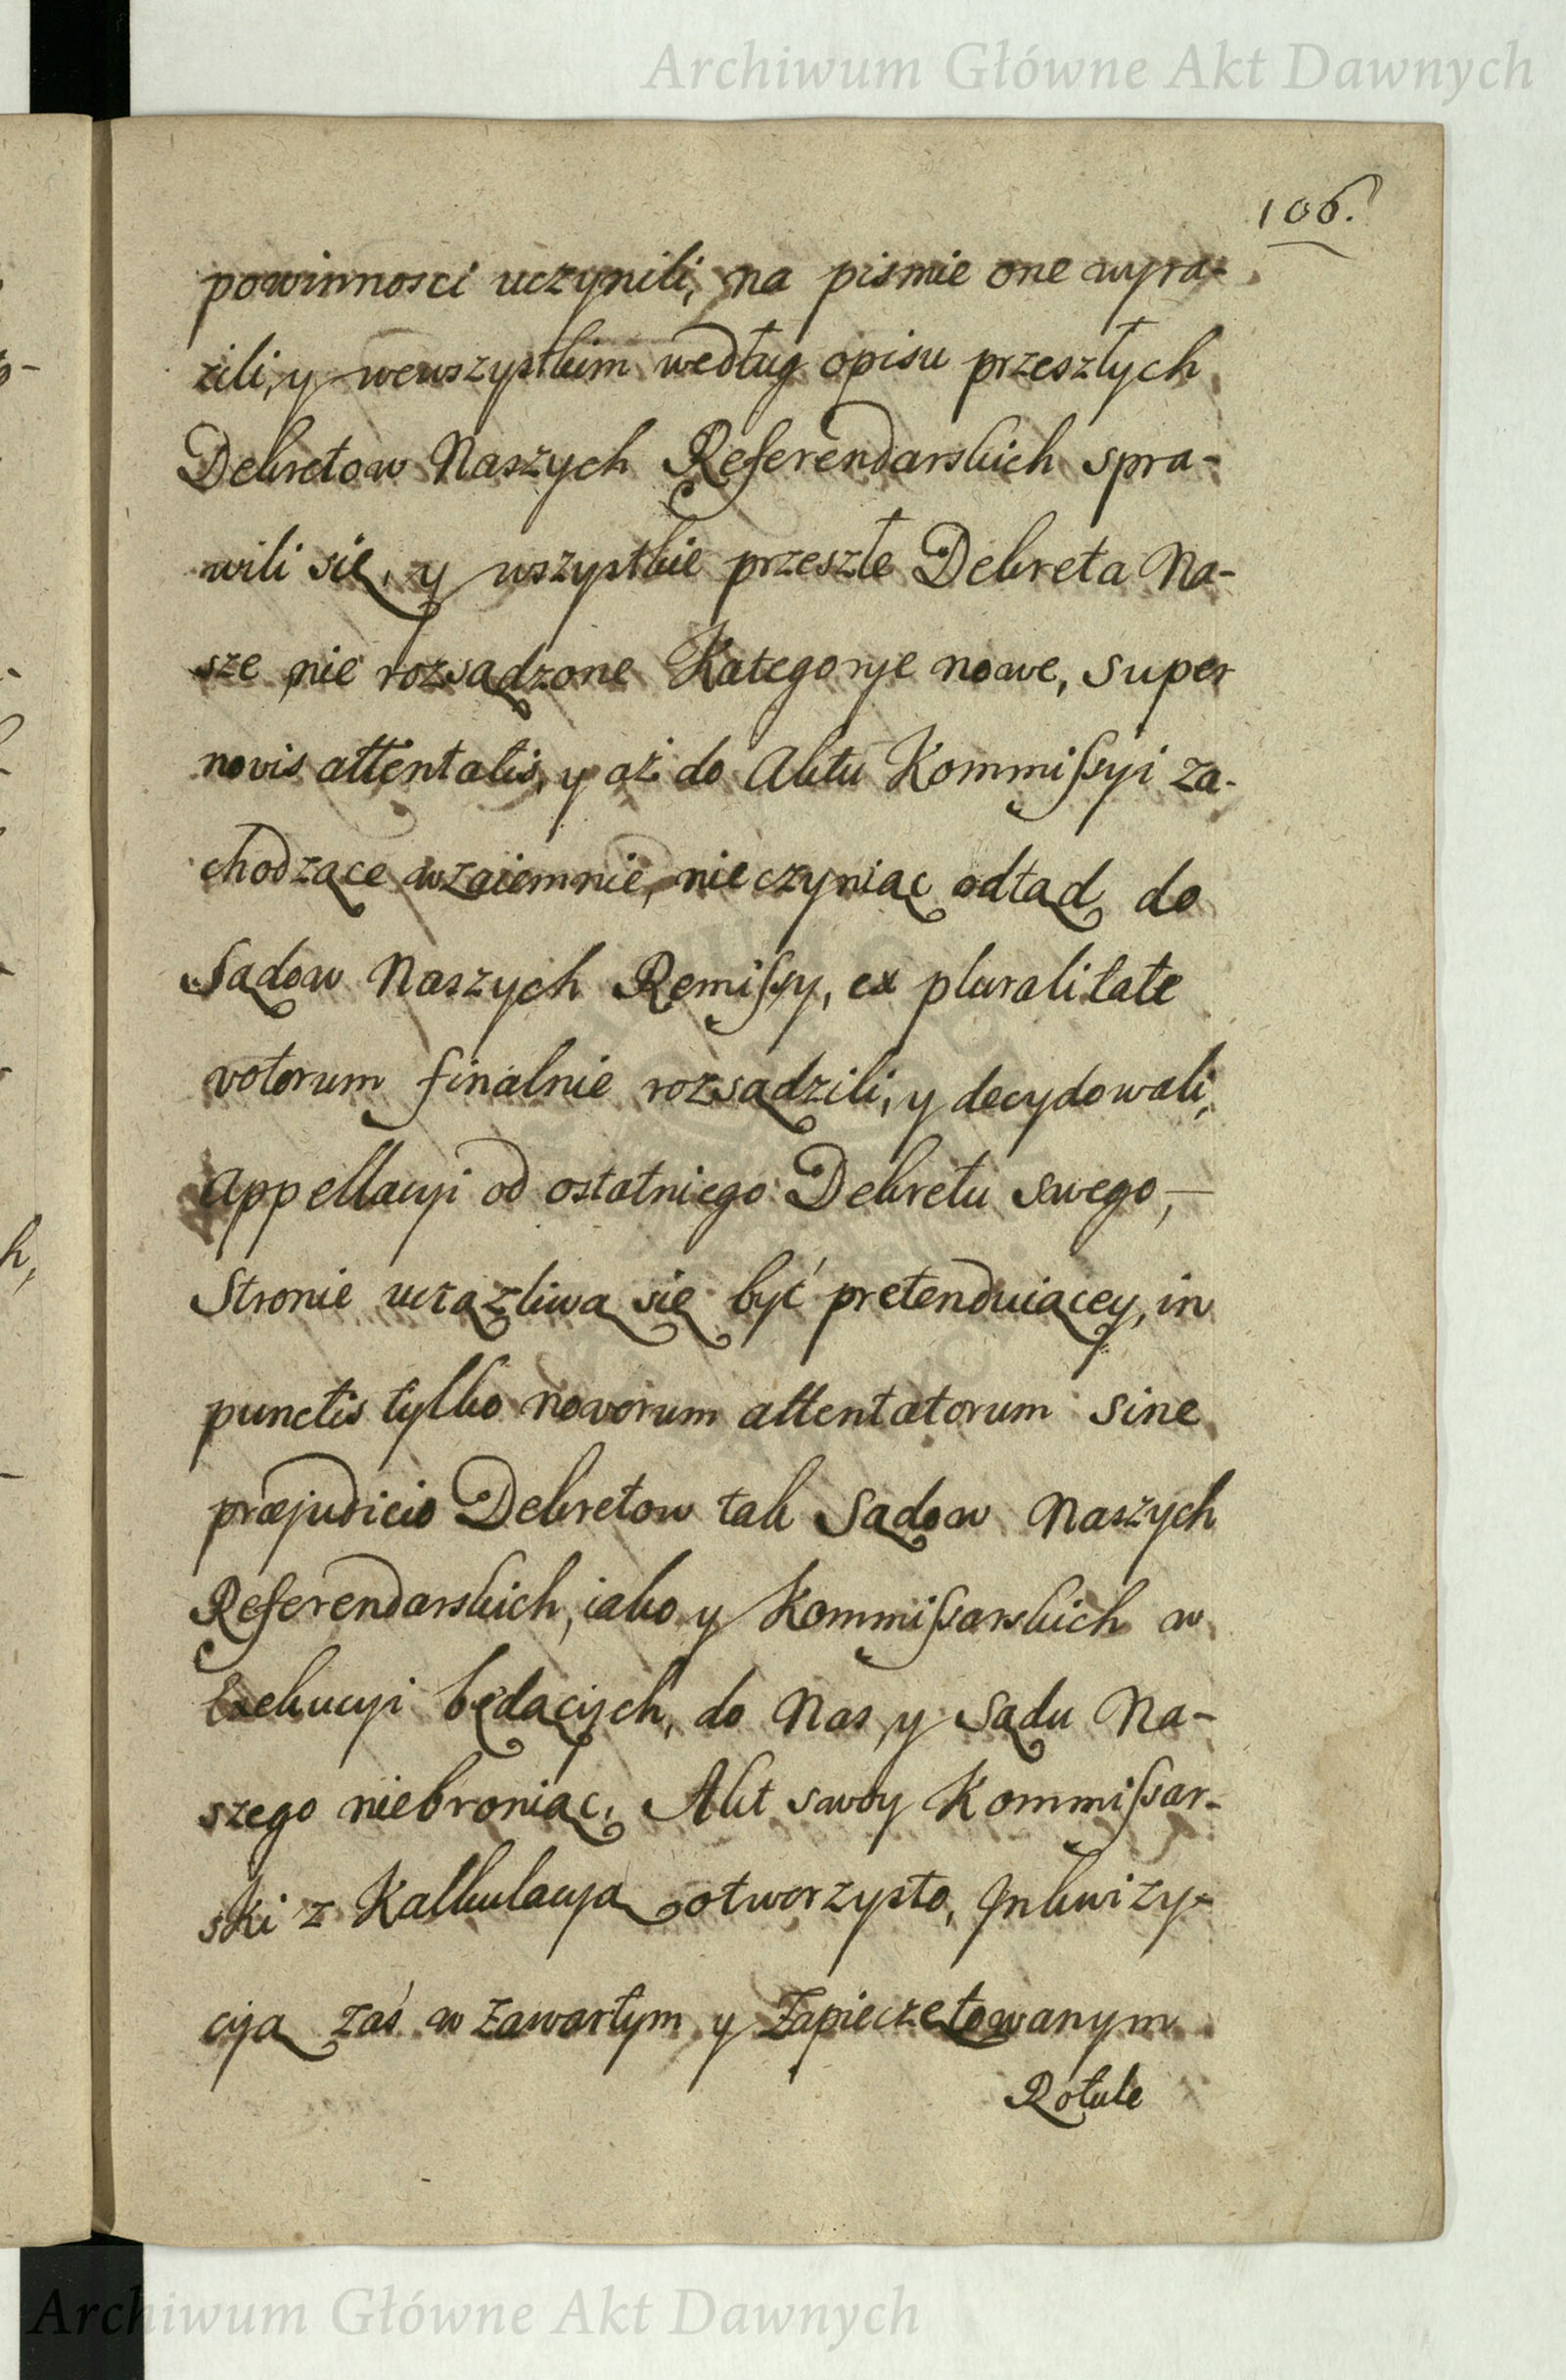 Archiwum Główne Akt Dawnych
106.
powinnosci uczynili, na pismie one wyra-
zili, y wewszystkim według opisu przeszłych
Dekretow Naszych Referendarskich spra-
wili się, y wszystkie przeszłe Dekreta Na-
sze nie rozsądzone Kategorye nowe, super
novis attentatis, y aż do Aktu Kommissyi za-
chodzące wzaiemnie, nie czyniąc odtąd do
Sądow Naszych Remissy, ex pluralitate
votorum finalnie rozsądzili, y decydowali,
Appellacyi od ostatniego Dekretu swego,—
Stronie urazliwą się być pretenduiącey, in
punctis tylko novorum attentatorum sine
præjudicio Dekretow tak Sądow Naszych
Referendarskich, iako y Kommissarskich w
Exekucyi będących, do Nas, y Sądu Na-
szego niebroniąc. Akt swoy Kommissar-
ski z Kalkulacyą otworzysto, Inkwizy-
cyą zaś w zawartym y Zapieczętowanym
Rotule
Archiwum Główne Akt Dawnych